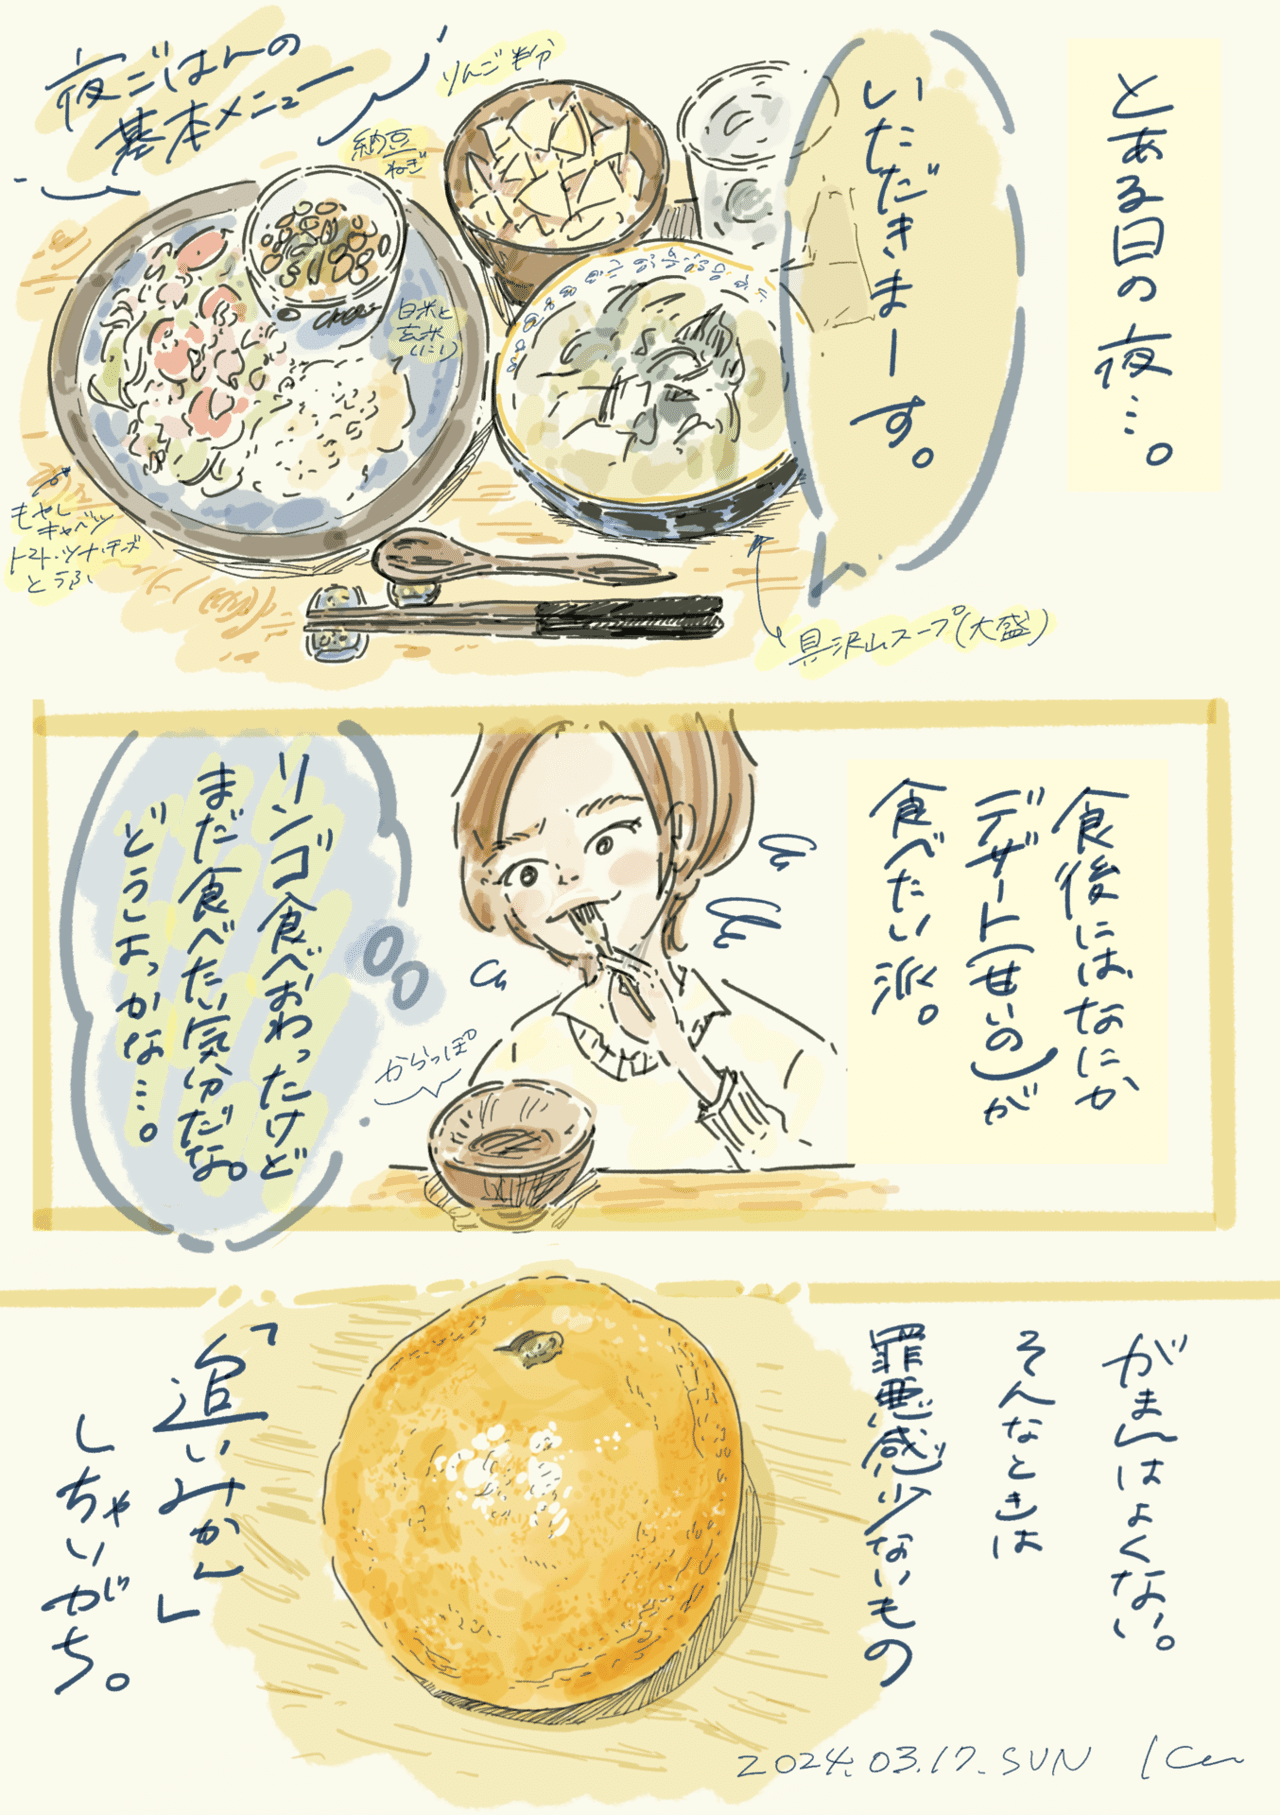 とある日の夜…。
いただきまーす。
夜ごはんの
基本メニュー
りんご半分
納豆
ねぎ
白米と
玄米
もやし
キャベツ
トマト・ツナ・チーズ
とうふ
具沢山スープ(大盛)
食後にはなにか
デザート(甘いの)が
食べたい派。
リンゴ食べおわったけど
まだ食べたい気分だな。
どうしよっかな…。
からっぽ
がまんはよくない。
そんなときは
罪悪感少ないもの
「追いみかん」
しちゃいがち。
2024.03.17.SUN